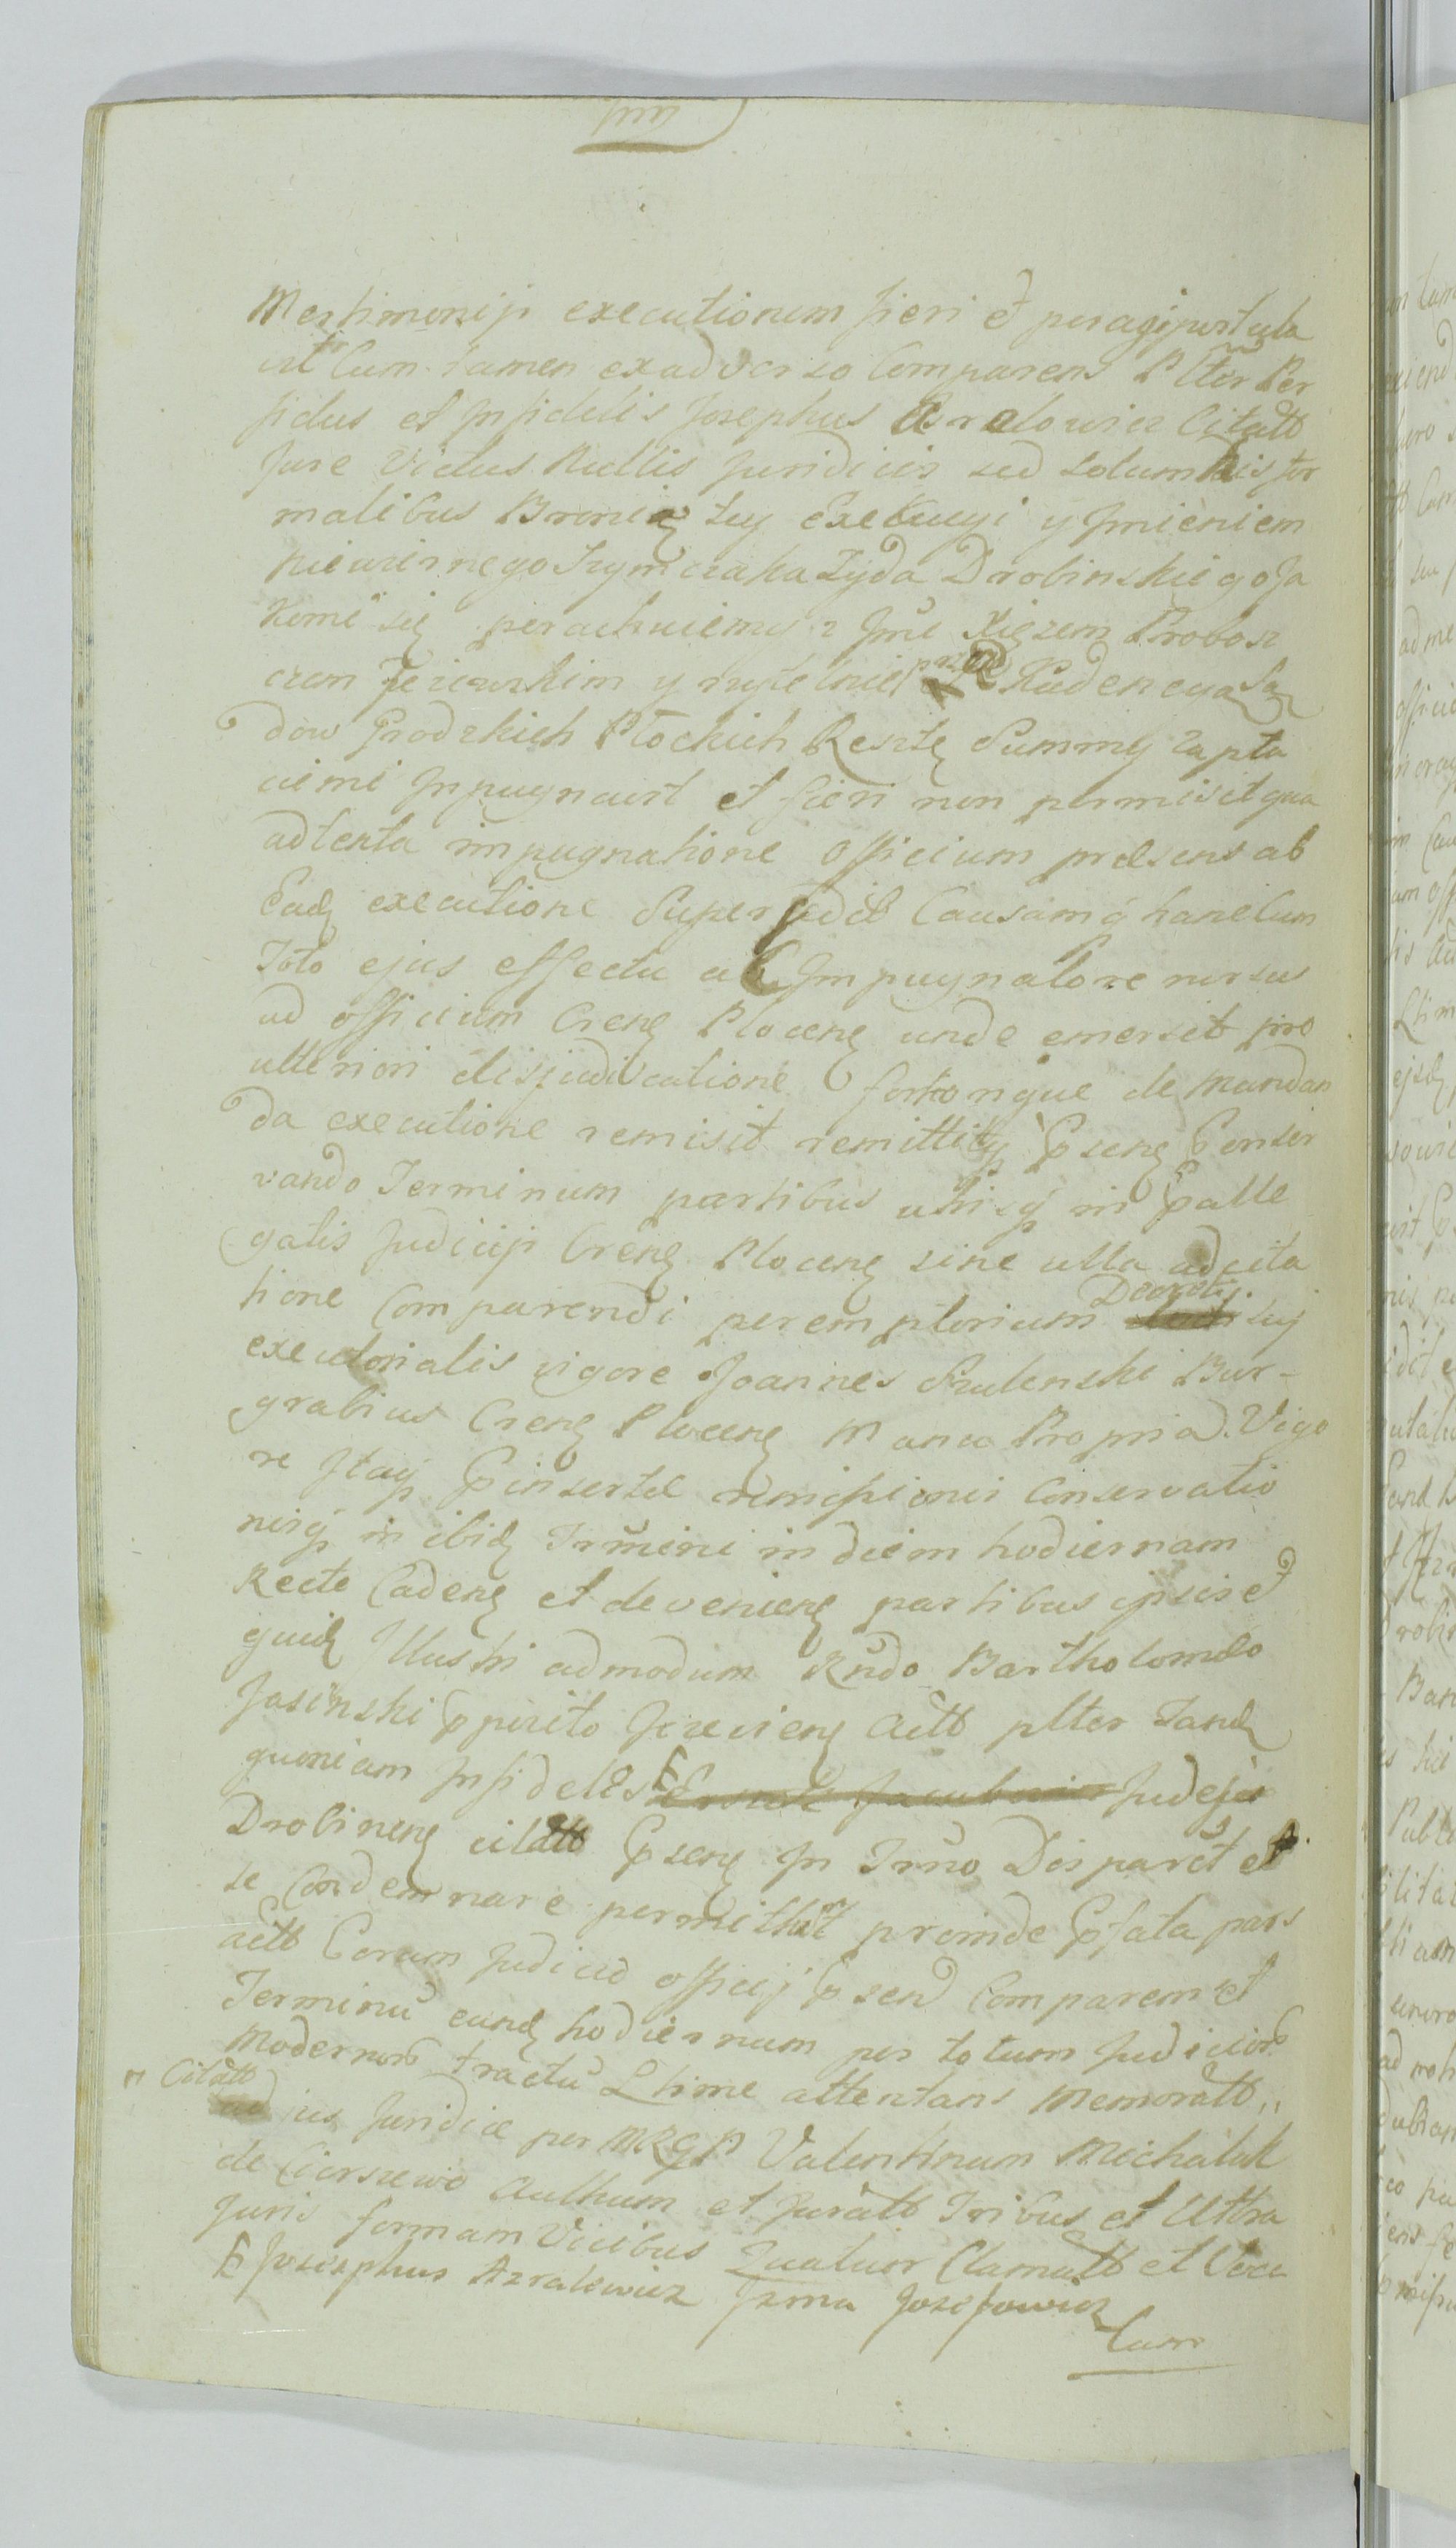 Mestimonijs executionem fieri et peragi postula
vit Cum tamen exadverso Comparens Pllter Per
fidus et Infidelis Josephus Azralowicz Citatt
Jure Victus Nullis Juridicis sed solum his for
malibus Bronię tuy Exekucyi y Imieniem
niewiernego Szymczaka Zyda Drobinskiego Ja
kome się porachuiemy z Jmć Xięzem Probosz
czem Jezewskim y przed Kadencyą Są
dow Grodzkich Płockich Resztę Summy zapła
ciemi Inpugnavit et fieri non permisit qua
adtenta impugnatione Officium praesens ab
Eadę executione Supersedit Causamq́ hanc Cum
Toto ejus effectu ab Impugnatore rursus
ad officium Crenę Plocenę unde emersit pro
ulteriori disjudicatione fortiorique de mandan
da executione remisit remittitq Psenę Conser
vando Terminum partibus utrisq́ in Palle
gatis Judicijs Crenę Plocenę sine ulla adcita
tione Comparendi peremptorium Decreti suj
executorialis vigore Joannes Szulenski Bur-
grabius Crenę Plocenę Manu Propria. Vigo
re Itaq Pinsertae remissionis Conservatio
nisq́ in ibidę Termini in diem hodiernam
Recte Cadenę et devenienę partibus ipsis et
quidę Illustri admodum Rndo Bartholomaeo
Jasinski Pposito Jezevienę Actt pltor Tandę
quoniam Infideles Judejus
Drobinenę citatt Psenę In Trno Disparet et
se Condemnare permittunt proinde Pfata pars
actt Coram Judicio officij Psend Comparens et
Terminũ eundę hodiernum per totum Judicior
Modernor tractũ Lhime attentans Memoratt
Citatt
ad jus Juridice per MRGP Valentinum Michalak
de Cierszewo Aulhum et Juratt Tribus et Ultra
Juris formam Vicibus Quatuor Clamatt et Voca
Josephus Azralewicz Izma Jozefowicz
Cum